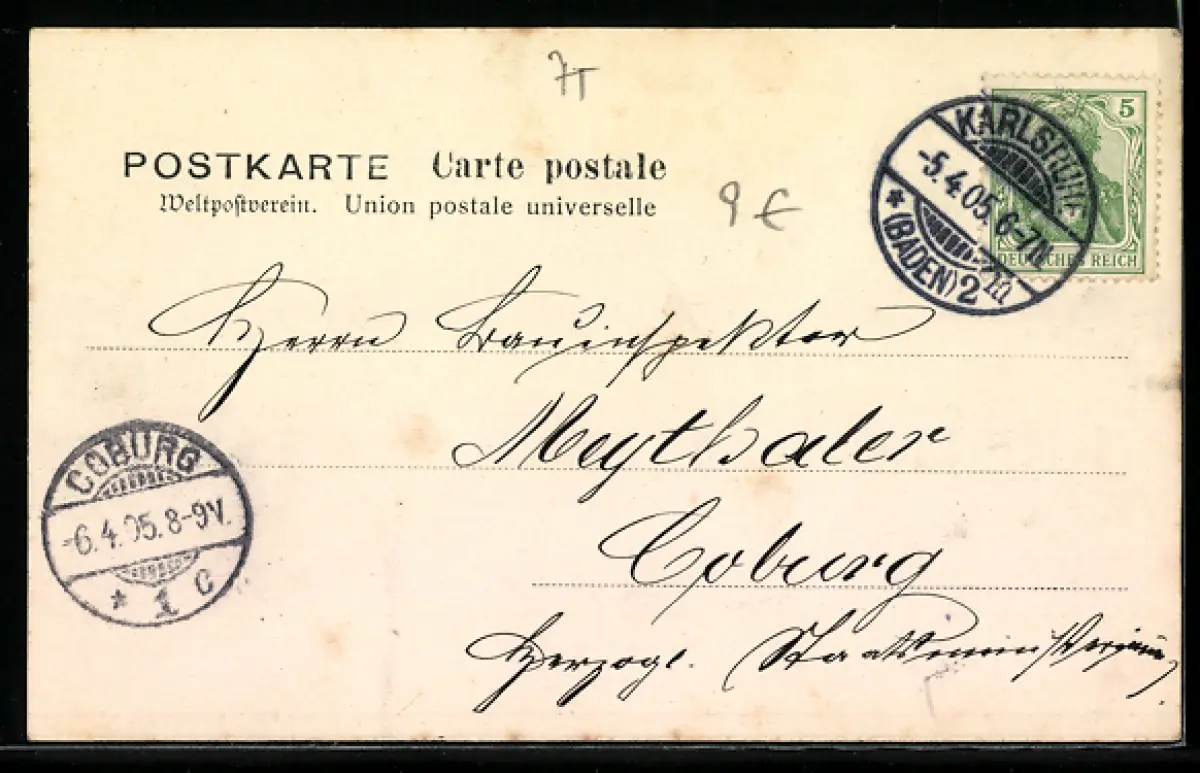 7T
POSTKARTE Carte postale
Weltpostverein. Union postale universelle
9 €
5
DEUTSCHES REICH
KARLSRUHE
-5.4.05. 6-7N
* (BADEN) 2
Herrn Bauinspektor
Meythaler
Coburg
Herzogl. Staatsministerium
COBURG
-6.4.05. 8-9V.
* 1 c